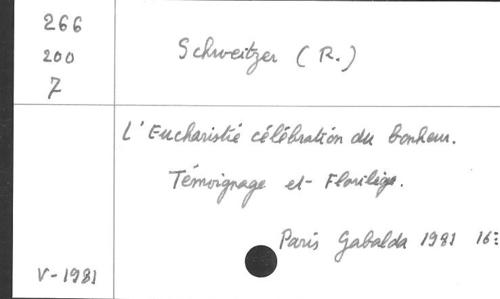 266
200
7
Schweitzer (R.)
L'Eucharistie célébration du bonheur.
Témoignage et Florilège.
Paris Gabalda 1981 16
V-1981